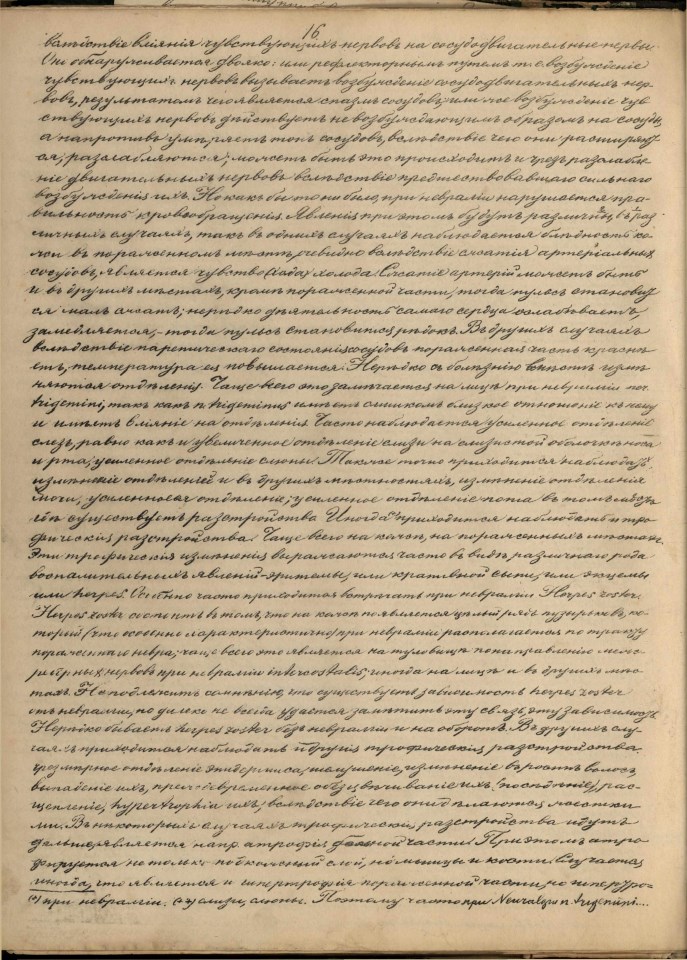 16
вслѣдствіе вліянія чувствующихъ нервовъ на сосудодвигательные нервы.
Они обнаруживается двояко: или рефлекторнымъ путемъ т. е. возбужденіе
чувствующихъ нервовъ вызываетъ возбужденіе сосудодвигательныхъ нер-
вовъ, результатомъ чего является спазмъ сосудовъ; или же возбужденіе чув
ствующихъ нервовъ дѣйствуетъ не возбуждающимъ образомъ на сосуды,
а напротивъ умѣряетъ тонъ сосудовъ, вслѣдствіе чего они расширяют
ся, разслабляются; можетъ быть это происходитъ и чрезъ разслабле
ніе двигательныхъ нервовъ вслѣдствіе предшествовавшаго сильнаго
возбужденія ихъ. Но какъ бы то ни было, при невралгіи нарушается пра-
вильность кровообращенія. Явленія при этомъ будутъ различны, въ раз
личныхъ случаяхъ, такъ въ однихъ случаяхъ наблюдается блѣдность ко-
жи въ пораженномъ мѣстѣ, очевидно вслѣдствіе сжатія артеріальныхъ
сосудовъ, является чувство холода. Сжатіе артерій можетъ быть
и въ другихъ мѣстахъ, кромѣ пораженной части, тогда пульсъ становит
ся малъ, сжатъ; нерѣдко дѣятельность самого сердца ослабѣваетъ,
замедляется, - тогда пульсъ становится рѣдокъ. Въ другихъ случаяхъ
вслѣдствіе паретическаго состоянія сосудовъ пораженная часть краснѣ
етъ, температура ея повышается. Нерѣдко съ болѣзнію вмѣстѣ измѣ
няются отдѣленія. Чаще всего это замѣчается на лицѣ при невралгіи
trigemini, такъ какъ n. trigeminus имѣетъ слишкомъ близкое отношеніе къ нему
и имѣетъ вліяніе на отдѣленія. Часто наблюдается усиленное отдѣленіе
слезъ, равно какъ и увеличенное отдѣленіе слизи на слизистой оболочкѣ носа
и рта; усиленное отдѣленіе слюны. Также точно приходится наблюдать
измѣненіе отдѣленій и въ другихъ мѣстностяхъ, измѣненіе отдѣленія
мочи, усиленное ея отдѣленіе; усиленное отдѣленіе пота въ томъ мѣстѣ,
гдѣ существуетъ разстройства. Иногда приходится наблюдать и тро-
фическія разстройства. Чаще всего на кожѣ, на пораженныхъ мѣстахъ.
Эти трофическія измѣненія выражаются часто въ видѣ различнаго рода
воспалительныхъ явленій - эритемы, или крапивной сыпи, или экцемы
или herpes. Особенно часто приходится встрѣчать при невралгіи Herpes zoster.
Herpes zoster состоитъ въ томъ, что на кожѣ появляется цѣлый рядъ пузырьковъ, ко-
торый (что особенно характеристично) при невралгіи располагается по тракту
пораженнаго нерва; чаще всего это является на туловищѣ по направленію меж-
реберныхъ нервовъ при невралгіи intercostales; иногда на лицѣ и въ другихъ мѣс-
тахъ. Не подлежитъ сомнѣнію, что существуетъ зависимость herpes zoster
отъ невралгіи, но далеко не всегда удается замѣтить эту связь, эту зависимость.
Нерѣдко бываетъ herpes zoster безъ невралгіи и на оборотъ. Въ другихъ слу-
чаяхъ приходится наблюдать и другія трофическія разстройства.
чрезмѣрное отдѣленіе эпидермиса, шелушеніе, измѣненіе въ ростѣ волосъ,
выпаденіе ихъ, преждевременное обезцвѣчиваніе ихъ (посѣдѣніе), рас-
щепленіе, hypertrophia ихъ, вслѣдствіе чего они дѣлаются жестки
ми. Въ нѣкоторыхъ случаяхъ трофическія разстройства идутъ
дальше, является напр. атрофія данной части. При этомъ атро-
фируется не только подкожный слой, но мышцы и кости. Случается
иногда, что является и гипертрофія пораженной части, но гипертро-
(*) при невралгіи. (**) слизи, слюны. Поэтому часто при Neuralgia n. trigemini....